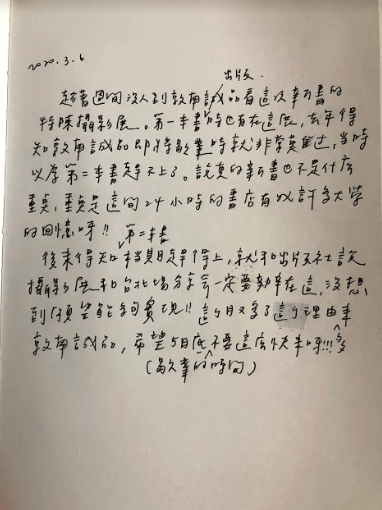 2020.3.6
出版
趁著週間沒人到敦南誠品看這次新書的
特陳攝影展。第一本書時也有在這展,去年得
知敦南誠品即將歇業時就非常莫名,當時
以為第二本書趕不上了。說真的新書也不是什麼
重點,重點是這間24小時的書店有以許多大學
的回憶呀!!
第二本書
後來得知檔期趕得上,就和出版社說
攝影展和台北場分享會一定要辦在這,沒想
到願望能夠實現!!這個月又多了這個理由來
敦南誠品,希望5月底不要這麼快來呀!!!
(歇業的時間)